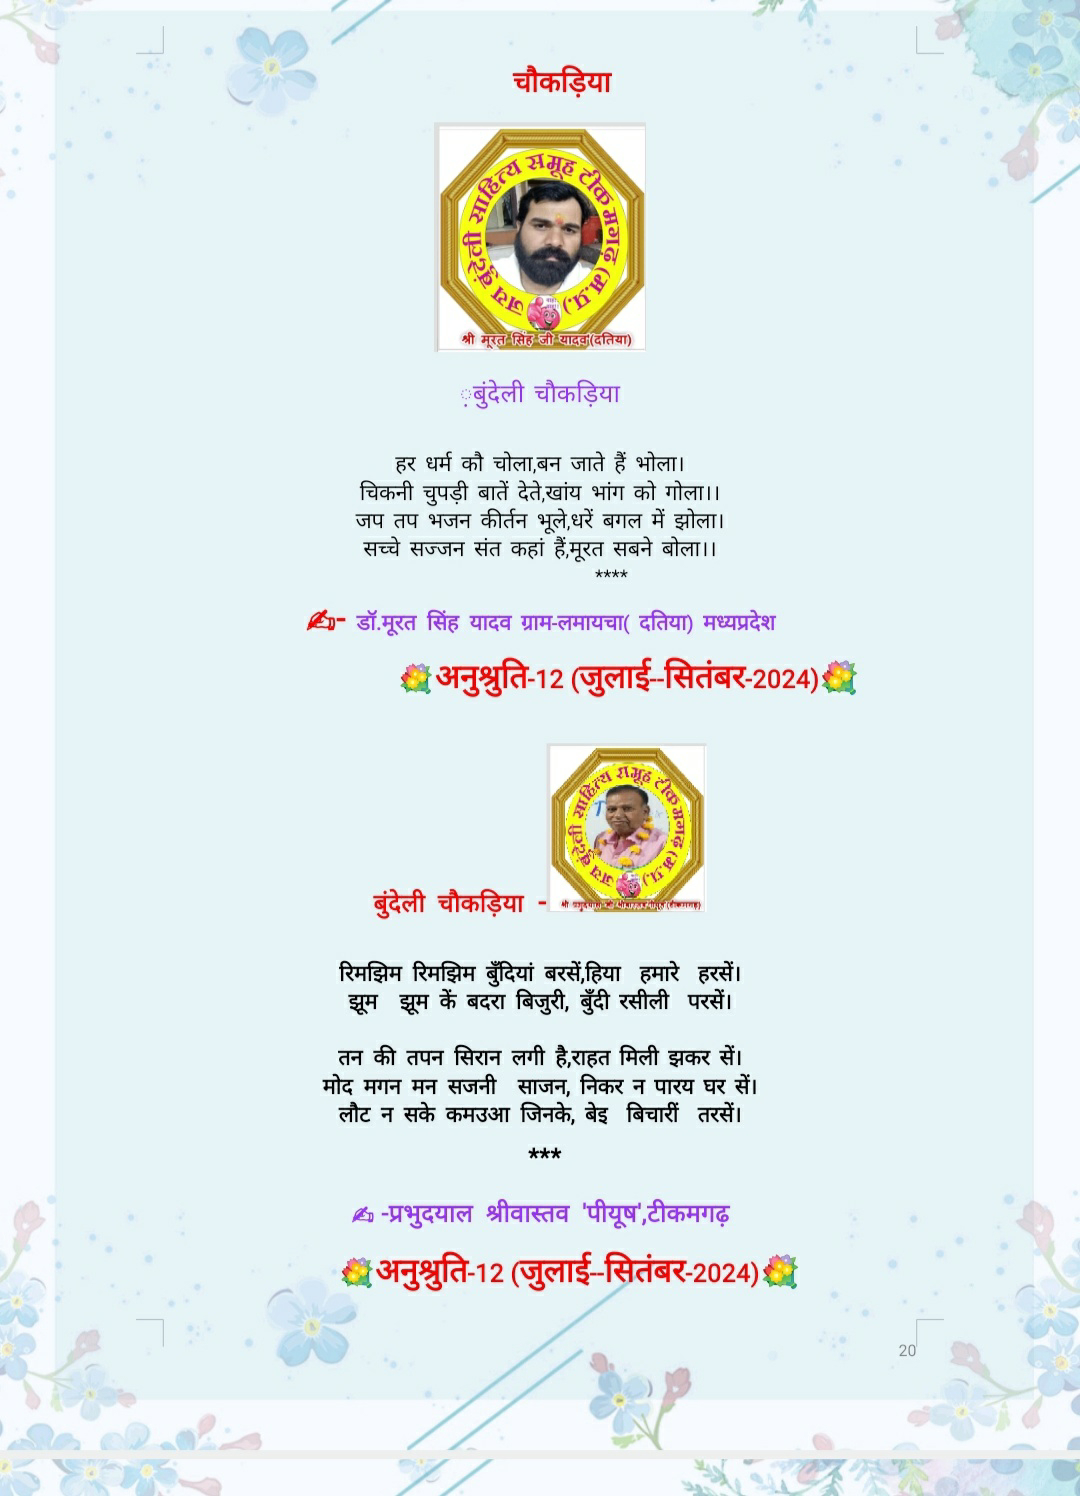 चौकड़िया
जय बुंदेली साहित्य समूह टीकमगढ़ (म.प्र.)
श्री मूरत सिंह जी यादव(दतिया)
़बुंदेली चौकड़िया
हर धर्म कौ चोला,बन जाते हैं भोला।
चिकनी चुपड़ी बातें देते,खांय भांग को गोला।।
जप तप भजन कीर्तन भूले,धरें बगल में झोला।
सच्चे सज्जन संत कहां हैं,मूरत सबने बोला।।
****
✍️- डॉ.मूरत सिंह यादव ग्राम-लमायचा( दतिया) मध्यप्रदेश
💐अनुश्रुति-12 (जुलाई--सितंबर-2024)💐
जय बुंदेली साहित्य समूह टीकमगढ़ (म.प्र.)
बुंदेली चौकड़िया -
रिमझिम रिमझिम बुँदियां बरसें,हिया हमारे हरसें।
झूम झूम कें बदरा बिजुरी, बुँदी रसीली परसें।
तन की तपन सिरान लगी है,राहत मिली झकर सें।
मोद मगन मन सजनी साजन, निकर न पारय घर सें।
लौट न सके कमउआ जिनके, बेइ बिचारीं तरसें।
***
✍️ -प्रभुदयाल श्रीवास्तव 'पीयूष',टीकमगढ़
💐अनुश्रुति-12 (जुलाई--सितंबर-2024)💐
20